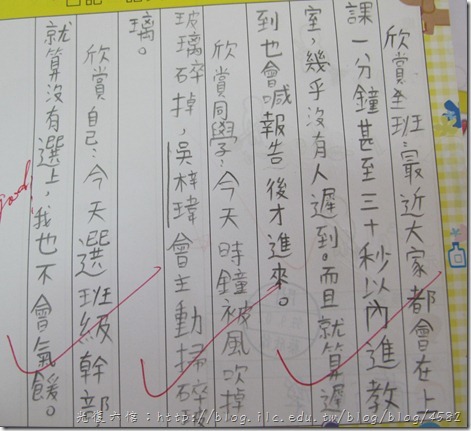 欣賞全班：最近大家都會在上
課一分鐘甚至三十秒以內進教
室，幾乎沒有人遲到。而且就算遲
到也會喊報告後才進來。
欣賞同學：今天時鐘被風吹掉
玻璃碎掉，吳梓瑋會主動掃碎玻
璃。
欣賞自己：今天選班級幹部
就算沒有選上，我也不會氣餒。
good!
光復六信：http://blog.ilc.edu.tw/blog/blog/4582